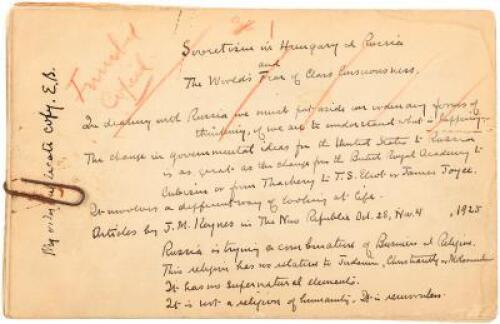 Sovietism in Hungary & Russia
and
The World's Fear of Class Consciousness.
In dealing with Russia we must put aside our ordinary forms of
thinking, if we are to understand what is happening.
The change in governmental ideas for the United States to Russia
is as great as the change from the British Royal Academy to
Cubism or from Thackery to T.S. Eliot or James Joyce.
It involves a different way of looking at life.
Articles by J. M. Keynes in The New Republic Oct. 28, Nov. 4, 1925
Russia is trying a combination of Business & Religion.
This religion has no relation to Judaism, Christianity or
It has no supernatural elements.
It is not a religion of humanity. It is
My only duplicate copy. E.B.
Copied